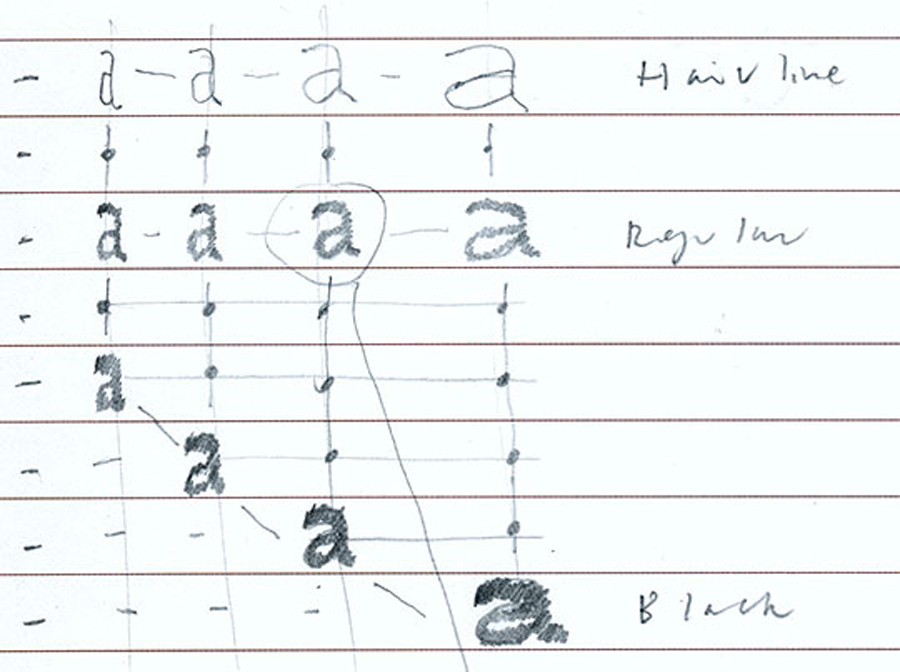 - a - a - a - a Hairline
-
- a - a - a - a Regular
-
- a
- - a
- - - a
- - - - a Black